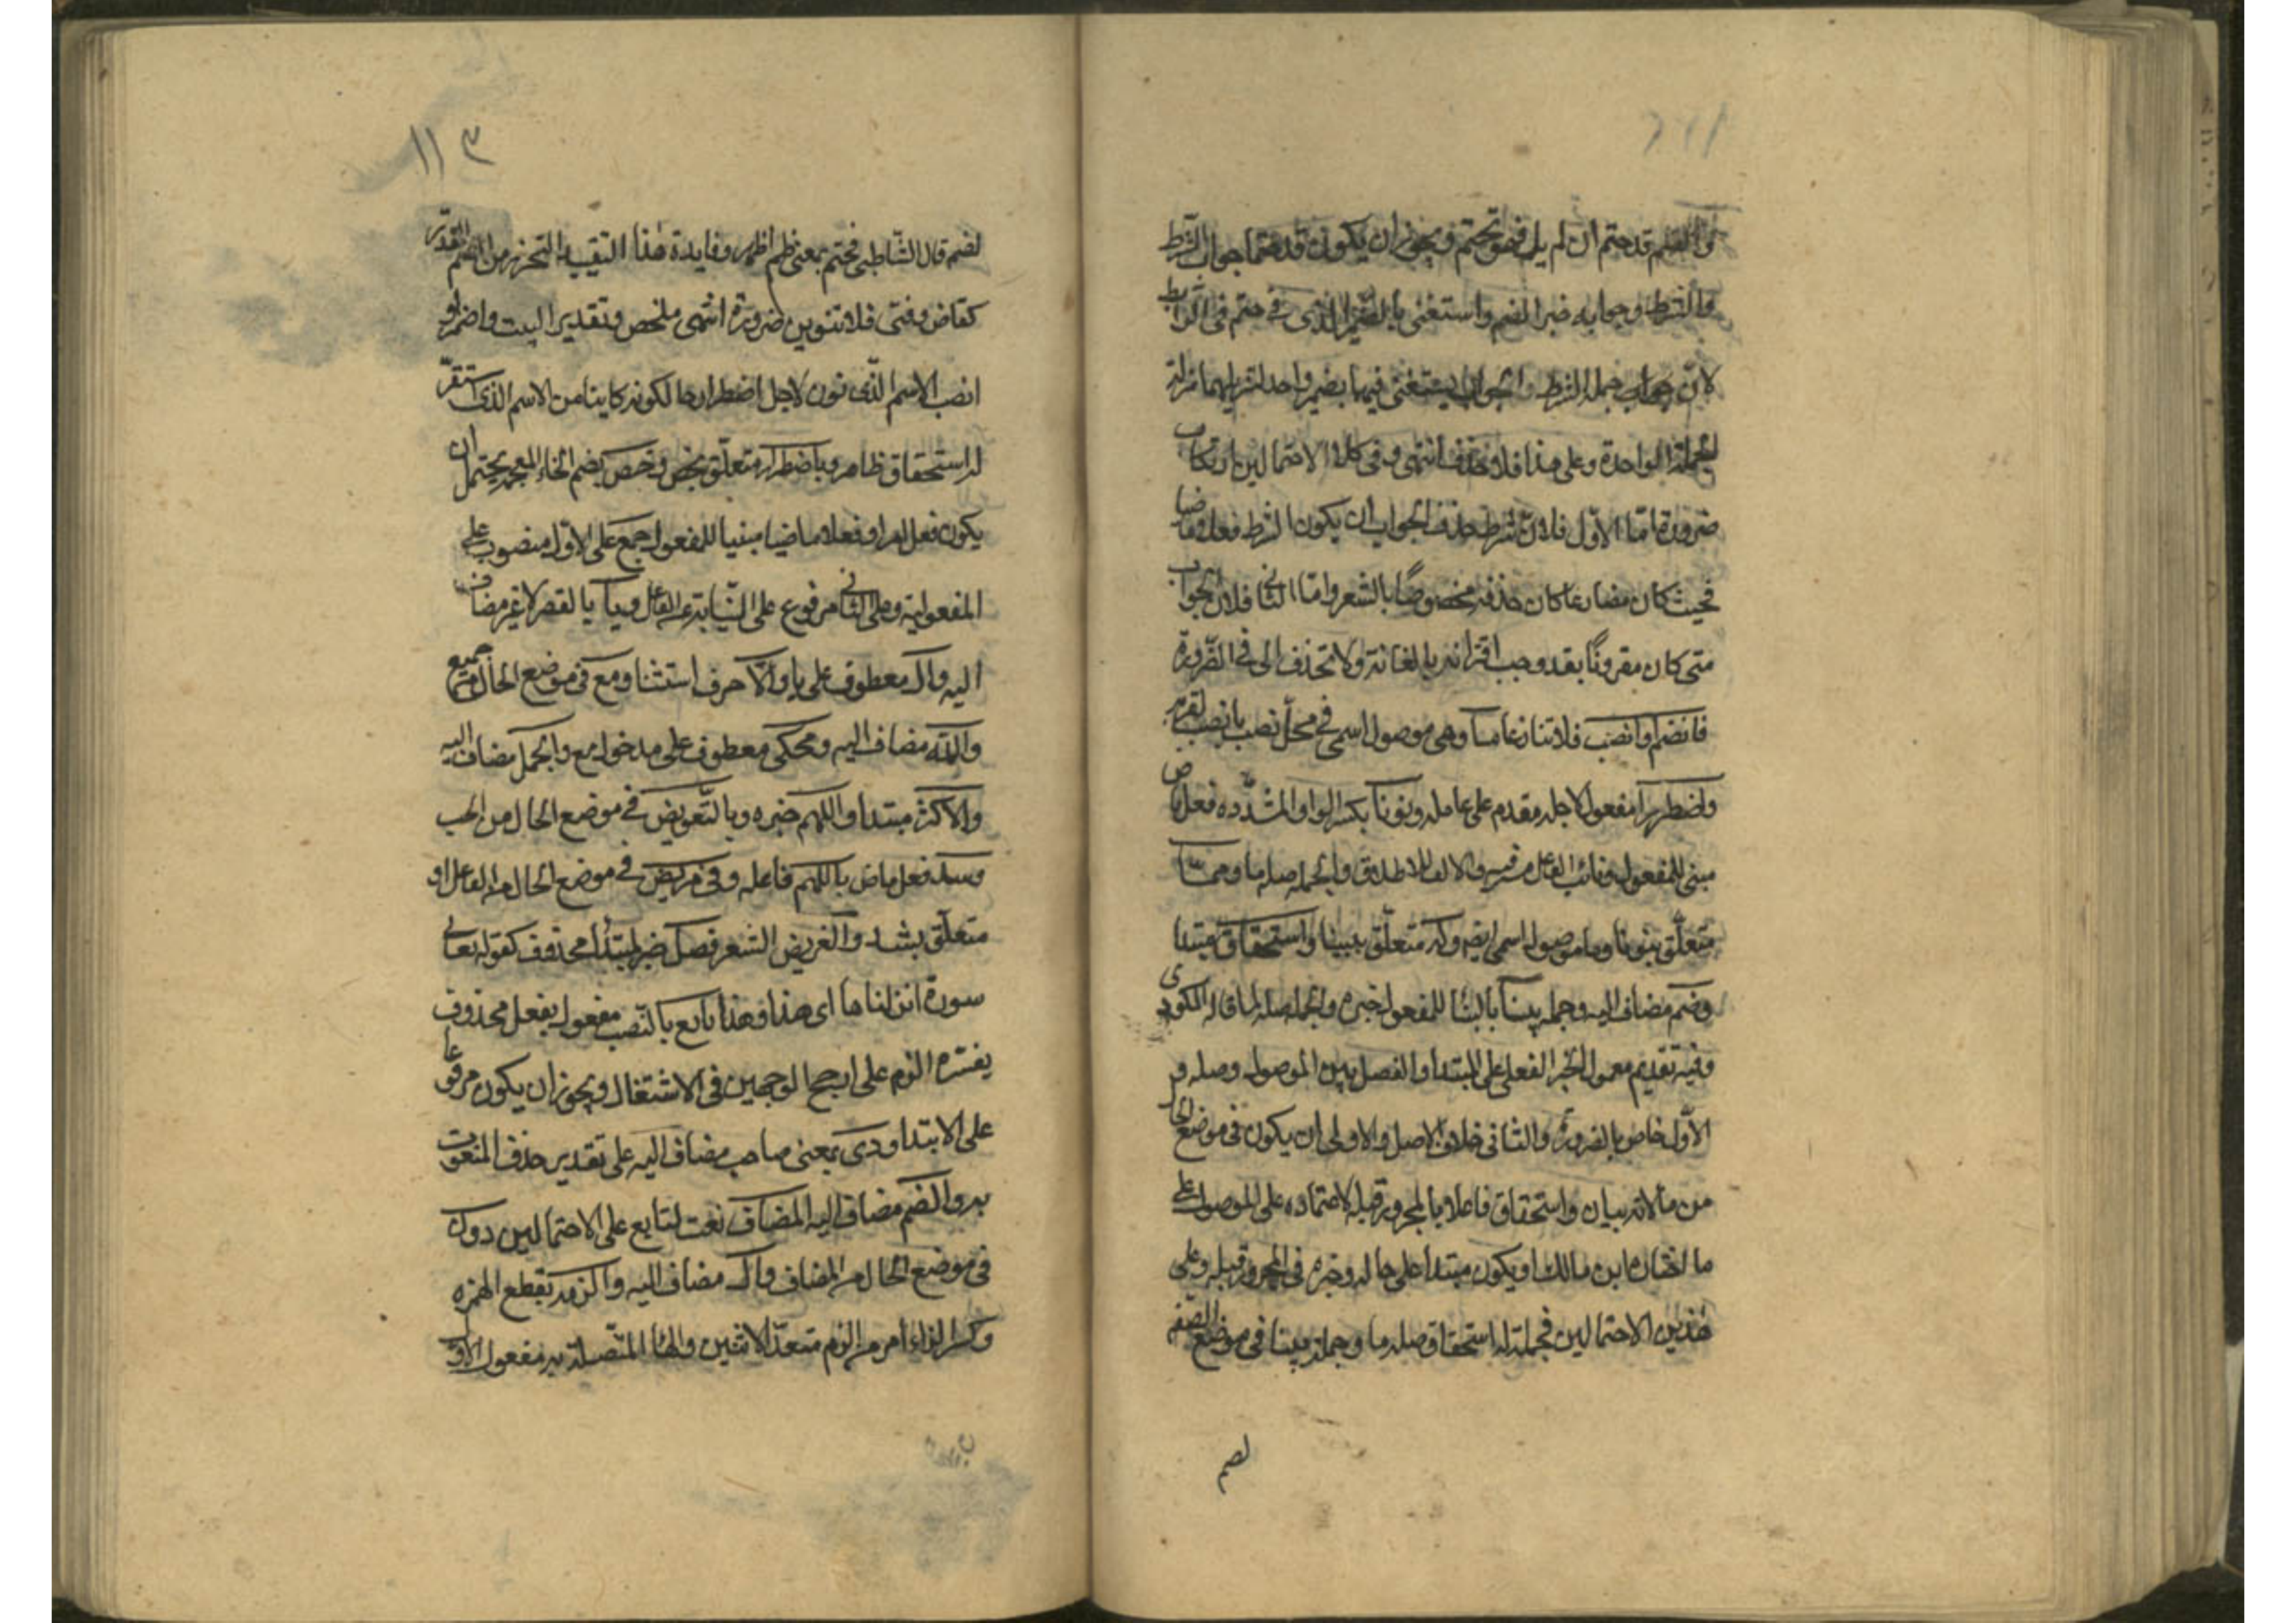 والضم قد حتم ان لم يل فهو تحتم ويجوز ان يكون قد حتما جواب الشرط
والشرط وجوابه خبر الضم واستغنى بالضمير الذي في حتم في الرابط
لان جملة الشرط والجواب يستغنى فيهما بضمير واحد لتنزيلهما منزلة
الجملة الواحدة وعلى هذا فلا حذف انتهى وفي كلا الاحتمالين ارتكاب
ضرورة امّا الاوّل فلانّ شرط حذف الجواب ان يكون الشرط فعلا ماضيا
فحيث كان مضارعا كان حذفه مخصوصًا بالشعر وامّا الثاني فلان الجواب
متى كان مقرونًا بقد وجب اقترانه بالفا فانه ولا تحذف الى في الضّرورة
فانضم او انصب فلا تنازعا ما وهي موصول اسمي في محلّ نصب بانصب لقربه
واضطرارا مفعول لاجله مقدم على عامله ونونا بكسر الواو المشدّده فعل ماض
مبنى للمفعول ونائب الفاعل مستتر فيه والالف للاطلاق والجمله صله ما وممّا
متعلّق بنونا وما موصول اسمي ايضه وله متعلّق ببينا واستحقاق مبتدا
وضم مضاف اليه وجمله بينا بالبنا للمفعول خبره والجمله صله لما قاله المكودى
وفيه تقديم معمول الخبر الفعلي على المبتدا والفصل بين الموصول وصله و
الاوّل خاص بالضرورة والثاني خلاف الاصل والاولى ان يكون في موضع الحال
من ما لانه بيان واستحقاق فاعلا بالمجرور قبله لاعتماده على الموصول على
ما اختاره ابن مالك او يكون مبتدا على حاله وخبره في المجرور قبله وعلى
هذين الاحتمالين فجملة له استحقاق صله ما وجملة بينا في موضع الصفه
لضم
١١٣
لضم قال الشّاطبي فحتم بمعنى ظم اظهر وفايدة هذا التقييد التحرز من الضم المقدّر
كقاض وفتى فلا تنوين ضرورة انتهى ملخص وتقدير البيت واضمم او
انصب الاسم الّذى نون لاجل اضطرارها لكونه كاينا من الاسم الذى استقرّ
له استحقاق ظاهر وباضطرار متعلّق بخص وخص بضم الخاء المعجمه يحتمل ان
يكون فعل امر او فعلا ماضيا مبنيا للمفعول جمع على الاوّل منصوب على
المفعولية وعلى الثاني مرفوع على النّيابة عن الفاعل ويا بالقصر لا غير مضاف
اليه وال معطوف على يا والّا حرف استثنا ومع في موضع الحال من جميع
والله مضاف اليه ومحكى معطوف على مدخول مع والجمل مضاف اليه
والاكثر مبتدا واللهم خبره وبالتّعويض في موضع الحال من اللهم
وشذ فعل ماض يا اللهم فاعله وفي قريض في موضع الحال من الفاعل او
متعلّق بشذ والقريض الشعر فصل خبر لمبتدأ محذوف كقوله تعالى
سورة انزلناها اى هذا وهذا تابع بالنّصب مفعول بفعل محذوف
يفسّره الزم على ارجح الوجهين في الاشتغال ويجوز ان يكون مرفوعا
على الابتدا وذى بمعنى صاحب مضاف اليه على تقدير حذف المنعوت
بذو الضم مضاف اليه المضاف نعت لتابع على الاحتمالين دون
في موضع الحال من المضاف وال مضاف اليه والزمه بقطع الهمزه
وكسر الزاء امر من الزم متعدّ لاثنين والهأ المتّصله به مفعول الاوّل